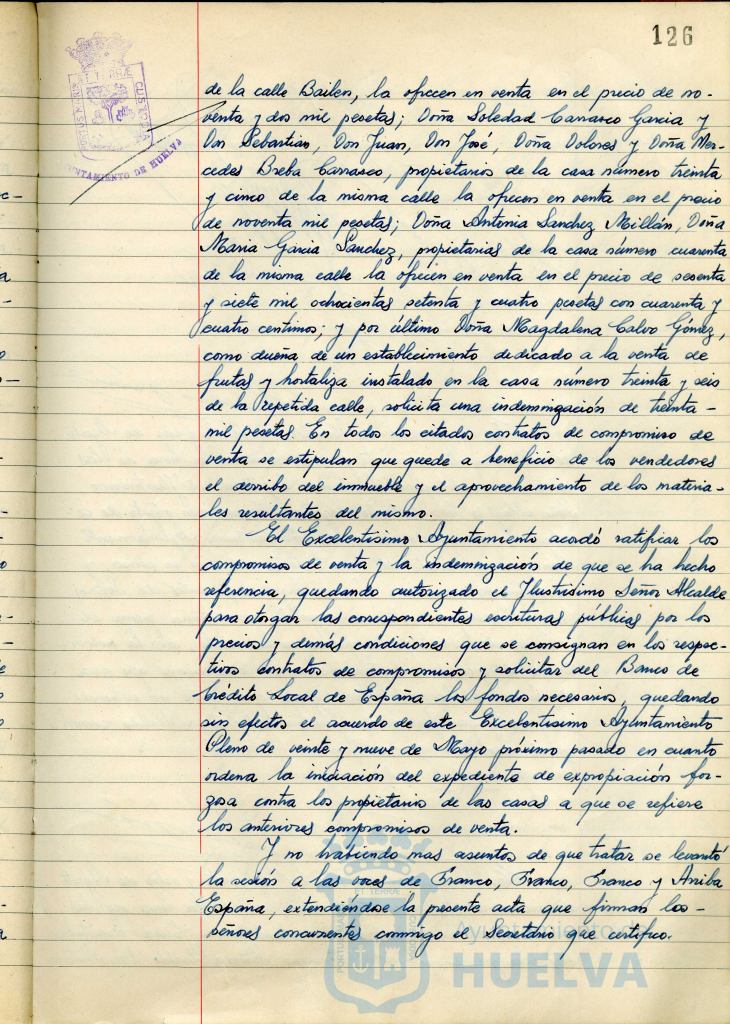 126
PORTUS MARIS ET TERRÆ CUSTODIA
AYUNTAMIENTO DE HUELVA
de la calle Bailen, la ofrecen en venta en el precio de no-
venta y dos mil pesetas; Doña Soledad Carrasco Garcia y
Don Sebastian, Don Juan, Don José, Doña Dolores y Doña Mer-
cedes Breba Carrasco, propietarios de la casa número treinta
y cinco de la misma calle la ofrecen en venta en el precio
de noventa mil pesetas; Doña Antonia Sanchez Millán, Doña
Maria Garcia Sanchez, propietarias de la casa número cuarenta
de la misma calle la ofrecen en venta en el precio de sesenta
y siete mil ochocientas setenta y cuatro pesetas con cuarenta y
cuatro centimos; y por último Doña Magdalena Calvo Gómez,
como dueña de un establecimiento dedicado a la venta de
frutas y hortaliza instalado en la casa número treinta y seis
de la repetida calle, solicita una indemnización de treinta-
mil pesetas. En todos los citados contratos de compromiso de
venta se estipulan que quede a beneficio de los vendedores
el derribo del inmueble y el aprovechamiento de los materia-
les resultantes del mismo.
El Excelentisimo Ayuntamiento acordó ratificar los
compromisos de venta y la indemnización de que se ha hecho
referencia, quedando autorizado el Ilustrisimo Señor Alcalde
para otorgar las correspondientes escrituras públicas por los
precios y demás condiciones que se consignan en los respec-
tivos contratos de compromisos y solicitar del Banco de
Crédito Local de España los fondos necesarios, quedando
sin efectos el acuerdo de este Excelentisimo Ayuntamiento
Pleno de veinte y nueve de Mayo próximo pasado en cuanto
ordena la iniciación del expediente de expropiación for-
zosa contra los propietarios de las casas a que se refiere
los anteriores compromisos de venta.
Y no habiendo mas asuntos de que tratar se levantó
la sesión a las voces de Franco, Franco, Franco y Arriba
España, extendiéndose la presente acta que firman los-
señores concurrentes conmigo el Secretario que certifico.
Ayuntamiento de
HUELVA